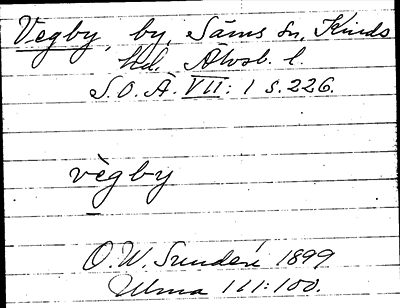 Vegby, by, Säms sn, Kinds
hd. Älvsb. l.
S.O.Ä. VII: 1 s. 226.
vègby
O. W. Sundén 1899
Ulma 111:100.